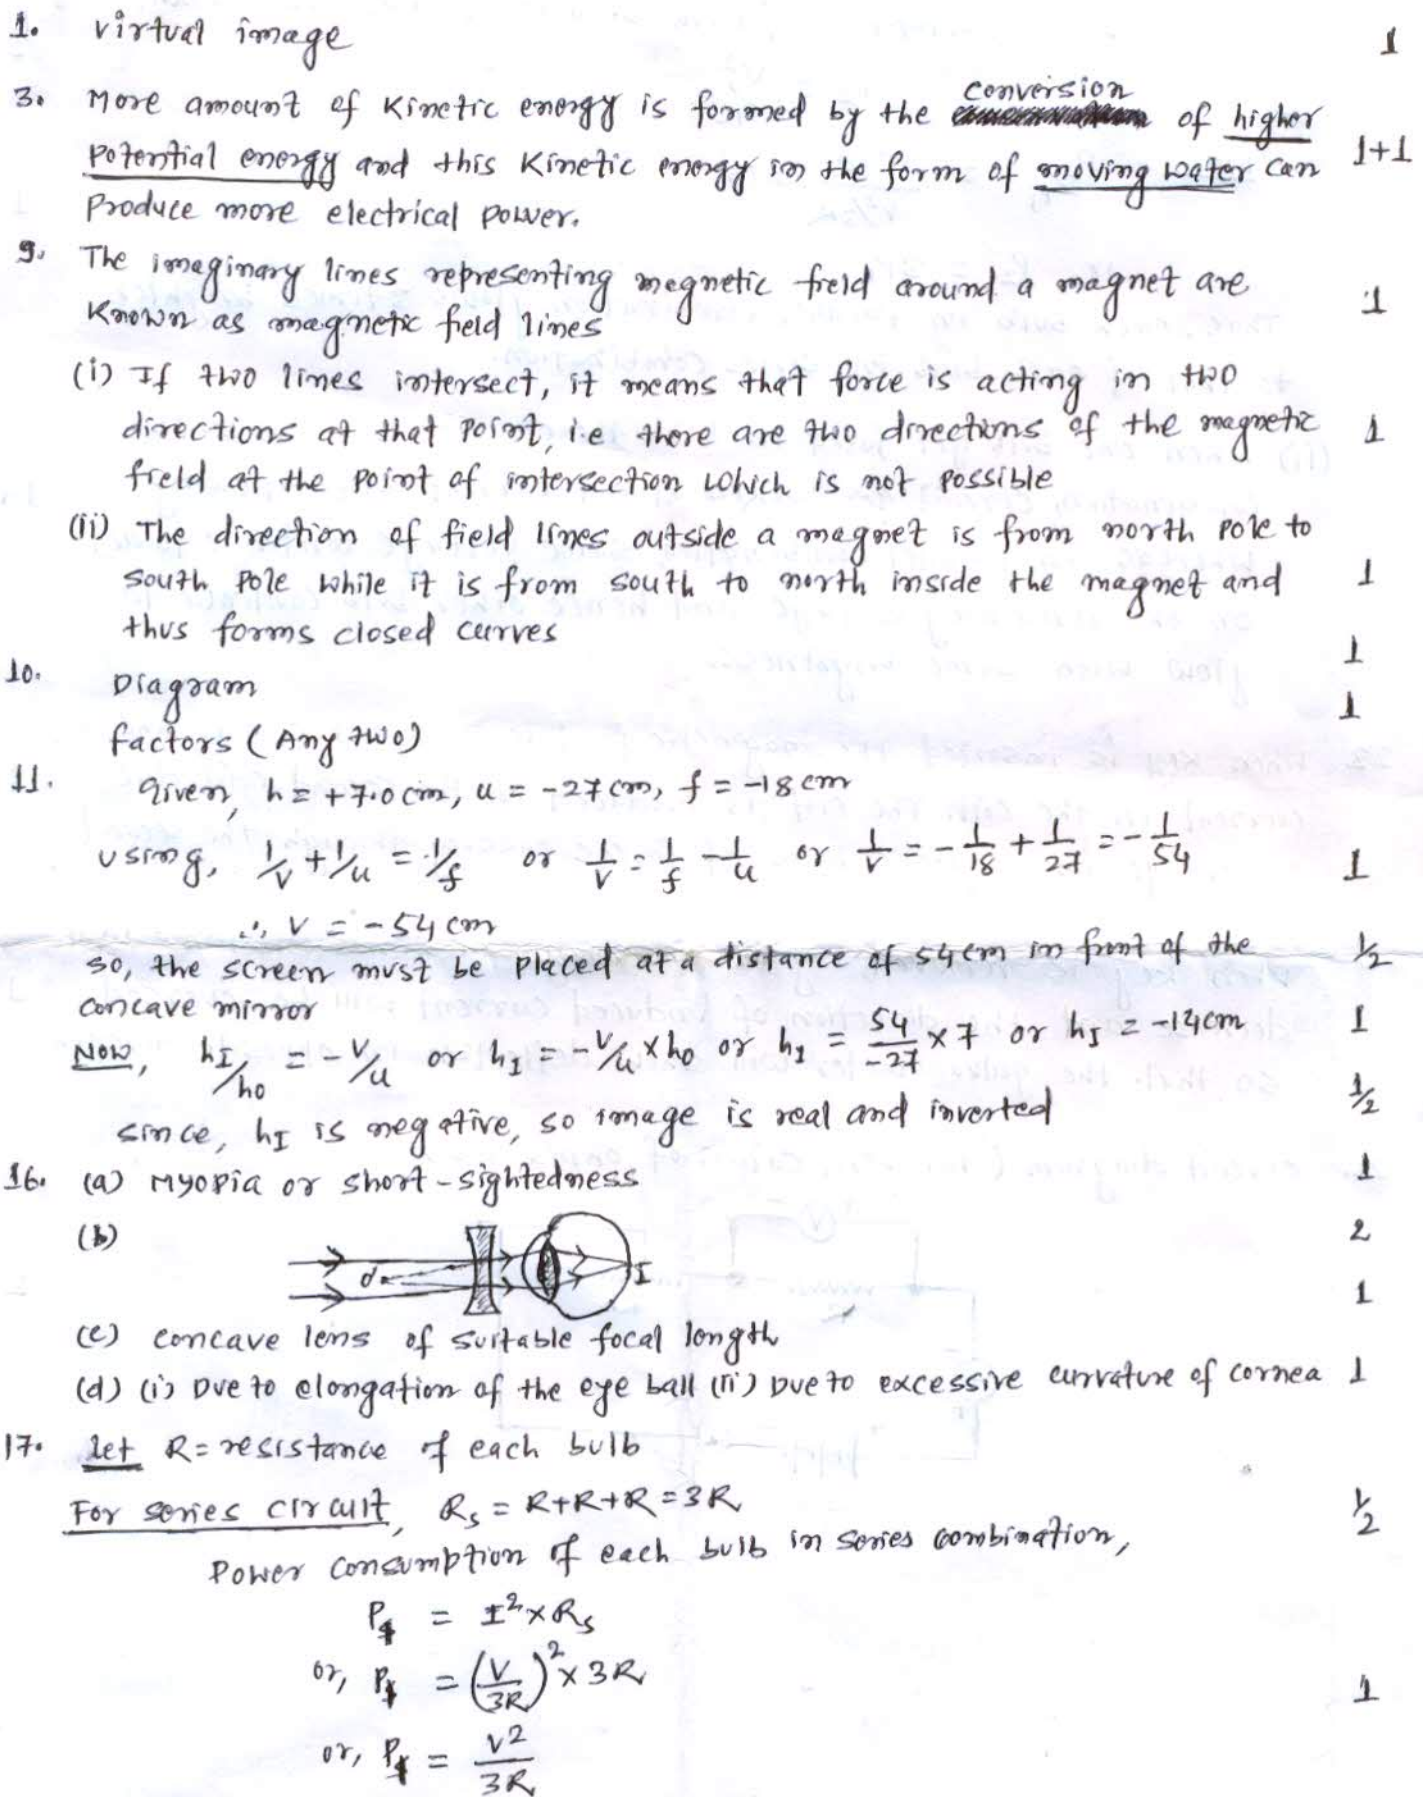 1. virtual image 1
3. More amount of Kinetic energy is formed by the conversion of higher 1+1
potential energy and this Kinetic energy in the form of moving water can
produce more electrical power.
9. The imaginary lines representing magnetic field around a magnet are 1
Known as magnetic field lines
(i) If two lines intersect, it means that force is acting in two
directions at that point, i.e there are two directions of the magnetic 1
field at the point of intersection which is not possible
(ii) The direction of field lines outside a magnet is from north pole to
south pole while it is from south to north inside the magnet and 1
thus forms closed curves
10. Diagram 1
factors (Any two) 1
11. given, h = +7.0 cm, u = -27 cm, f = -18 cm
using, 1/v + 1/u = 1/f or 1/v = 1/f - 1/u or 1/v = -1/18 + 1/27 = -1/54 1
∴, v = -54 cm
so, the screen must be placed at a distance of 54 cm in front of the 1/2
concave mirror
Now, hI/ho = -v/u or hI = -v/u × ho or hI = 54/-27 × 7 or hI = -14cm 1
since, hI is negative, so image is real and inverted 1/2
16. (a) Myopia or short-sightedness 1
(b) 2
I
(c) concave lens of suitable focal length 1
(d) (i) Due to elongation of the eye ball (ii) Due to excessive curvature of cornea 1
17. Let R = resistance of each bulb
For series circuit, Rs = R+R+R = 3R 1/2
Power consumption of each bulb in series combination,
P1 = I² × Rs
or, P1 = (V/3R)² × 3R 1
or, P1 = V²/3R